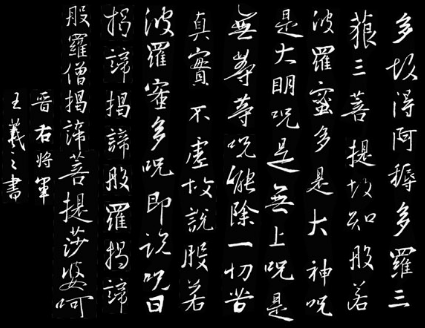 多故得阿耨多羅三
藐三菩提故知般若
波羅蜜多是大神呪
是大明呪是無上呪是
無等等呪能除一切苦
真實不虛故說般若
波羅蜜多呪即說呪曰
揭諦揭諦般羅揭諦
般羅僧揭諦菩提莎婆呵
晉右將軍
王羲之書